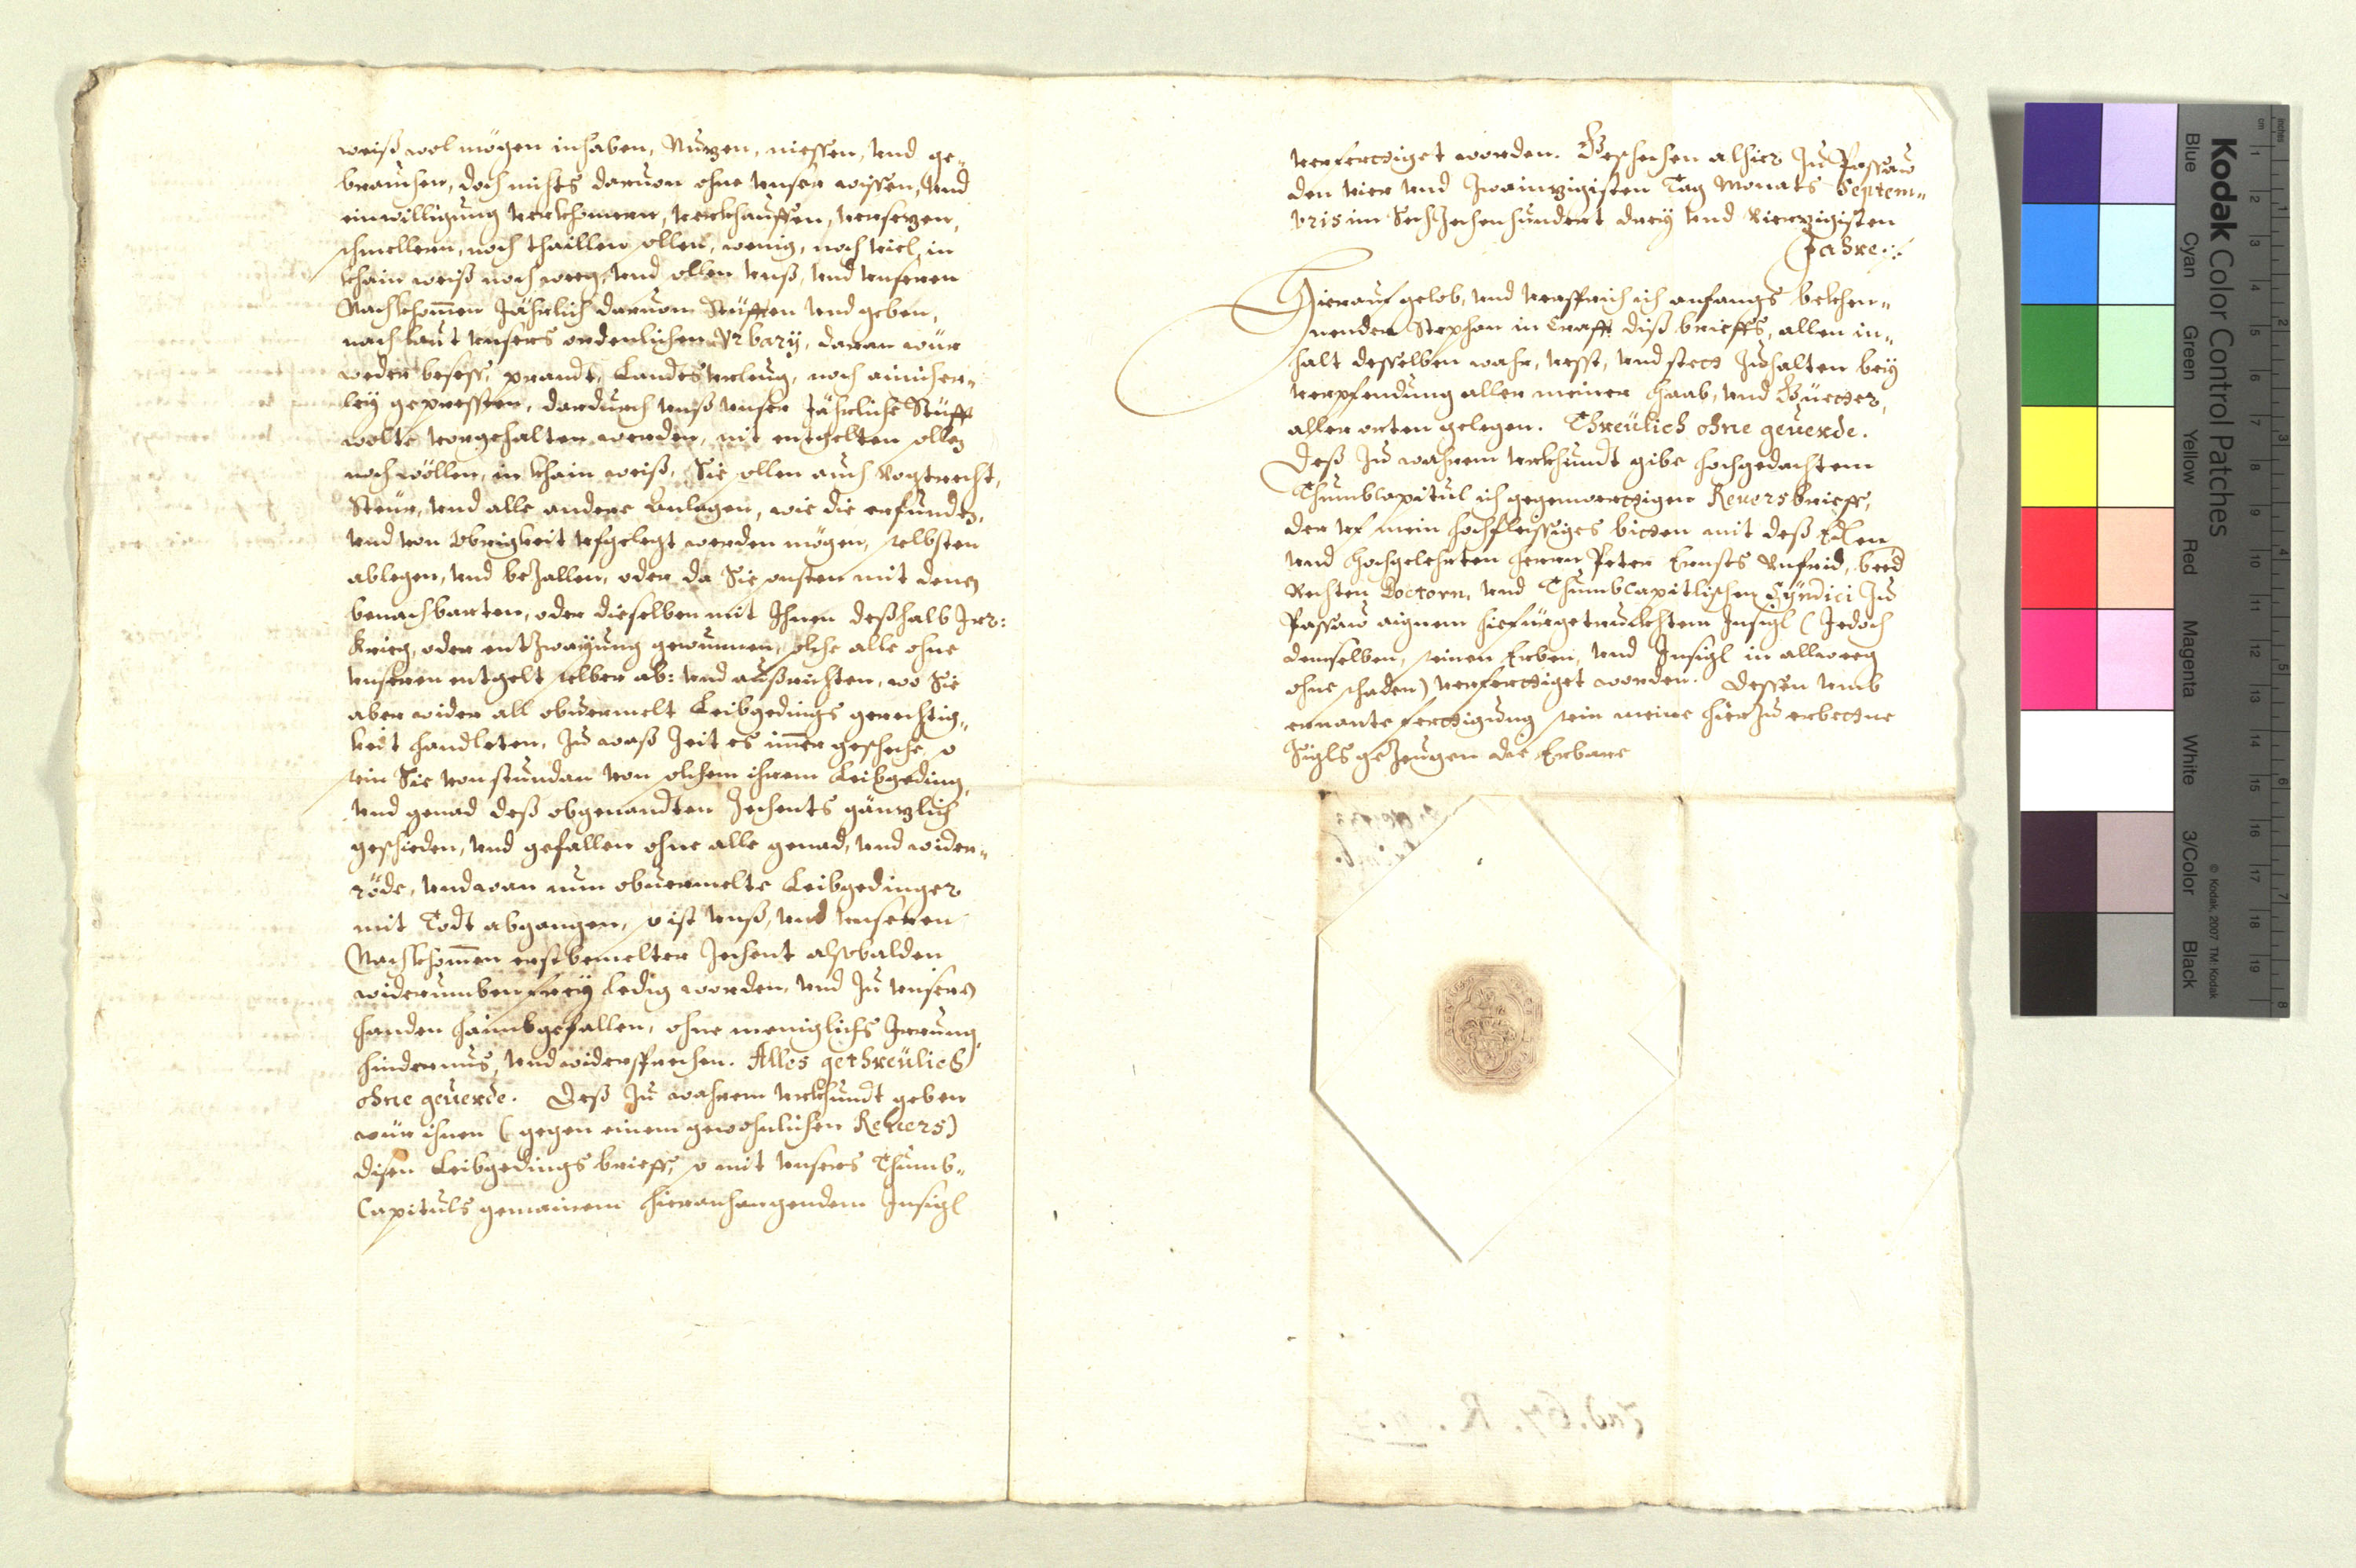 weiß wol mögen inhaben, Nuzen, niessen, vnd ge„
brauchen, doch nichts daruon ohne vnser wissen, vnd
einwilligung verkhomern, verkhauffen, versezen,
schmellern, noch thaillen sollen, wenig, noch viel, in
khain weiß noch weeg, vnd sollen vnß, vnd vnseren
Nachkhomen Jährlich daruon Stüfften vnd geben,
nach laut vnsers ordenlichen Vrbarÿ, daran wür
weder besess, prandt, Landtsverleug, noch ainicher„
leÿ gepressten, dardurch vnß vnser Jährliche Stüfft
wolte vorgehalten werden, nit entgelten sollen
noch wöllen, in khain weiß. Sie sollen auch Vogtrecht,
Steur, vnd alle andere Anlagen, wie die erfunden,
vnd von Obrigkeit vfgelegt werden mögen, selbsten
ablegen, vnd bezallen, oder da Sie sonsten mit denen
benachbarten, oder dieselben mit Ihnen deßhalb Irr:
krieg, oder entzwayung gewunnen, solche alle ohne
vnseren entgelt selber ab: vnd außrichten, wo Sie
aber wider all obuermelt Leibgedings gerechtig„
keit handleten, zu waß Zeit es imer geschehe, so
sein Sie von stundan von solchem ihrem Leibgeding,
vnd genad deß obgenandten Zechents gänzlich
geschieden, vnd gefallen ohne alle genad, vnd wider„
röde, vnd wan nun obuermelte Leibgedinger
mit Todt abgangen, so ist vnß, vnd vnseren
Nachkhomen erstbemelter Zechent alssbalden
widerumben freÿ ledig worden, vnd zu vnsern
handen haimbgefallen, ohne meniglichs Irrung,
hindernus, vnd widersprechen. Alles gethreülich
ohne geuerde. Deß zu wahrem vrkhundt geben
wür ihnen (gegen einem gewohnlichen Reuers)
disen Leibgedings brieff, so mit vnsers Thumb„
Capituls gemainem hieranhangendem Insigl
verfertiget worden. Geschehen alhier zu Passaw
den vier vnd zwainzigisten Tag Monats Septem„
bris im Sechzechenhundert dreÿ vnd Vierzigisten
Jahre.
Hierauf gelob, vnd versprich ich anfangs bekhen„
nender Stephan in Crafft diß brieffs, allen in„
halt desselben wahr, vesst, vnd stett zuhalten beÿ
verpfendung aller meiner Haab, vnd Güetter,
aller orten gelegen. Threülich ohne geuerde.
Deß zu wahrem vrkhundt gibe hochgedachtem
Thumbcapitul ich gegenwerttigen Reuersbrieff,
der vf mein hochfleissiges bitten mit deß Edlen
vnd Hochgelehrten Herrn Peter Ernsts Vnfrid, beed
Rechten Doctorn, vnd Thumbcapitlischen Sÿndici zu
Passaw aignem hiefürgetruckhtem Insigl (Jedoch
demselben, seinen Erben, vnd Insigl in allweeg
ohne schaden) verferttiget worden. Dessen vmb
ernante ferttigung sein meine hierzu erbettne
Sigls gezeugen die Erbare